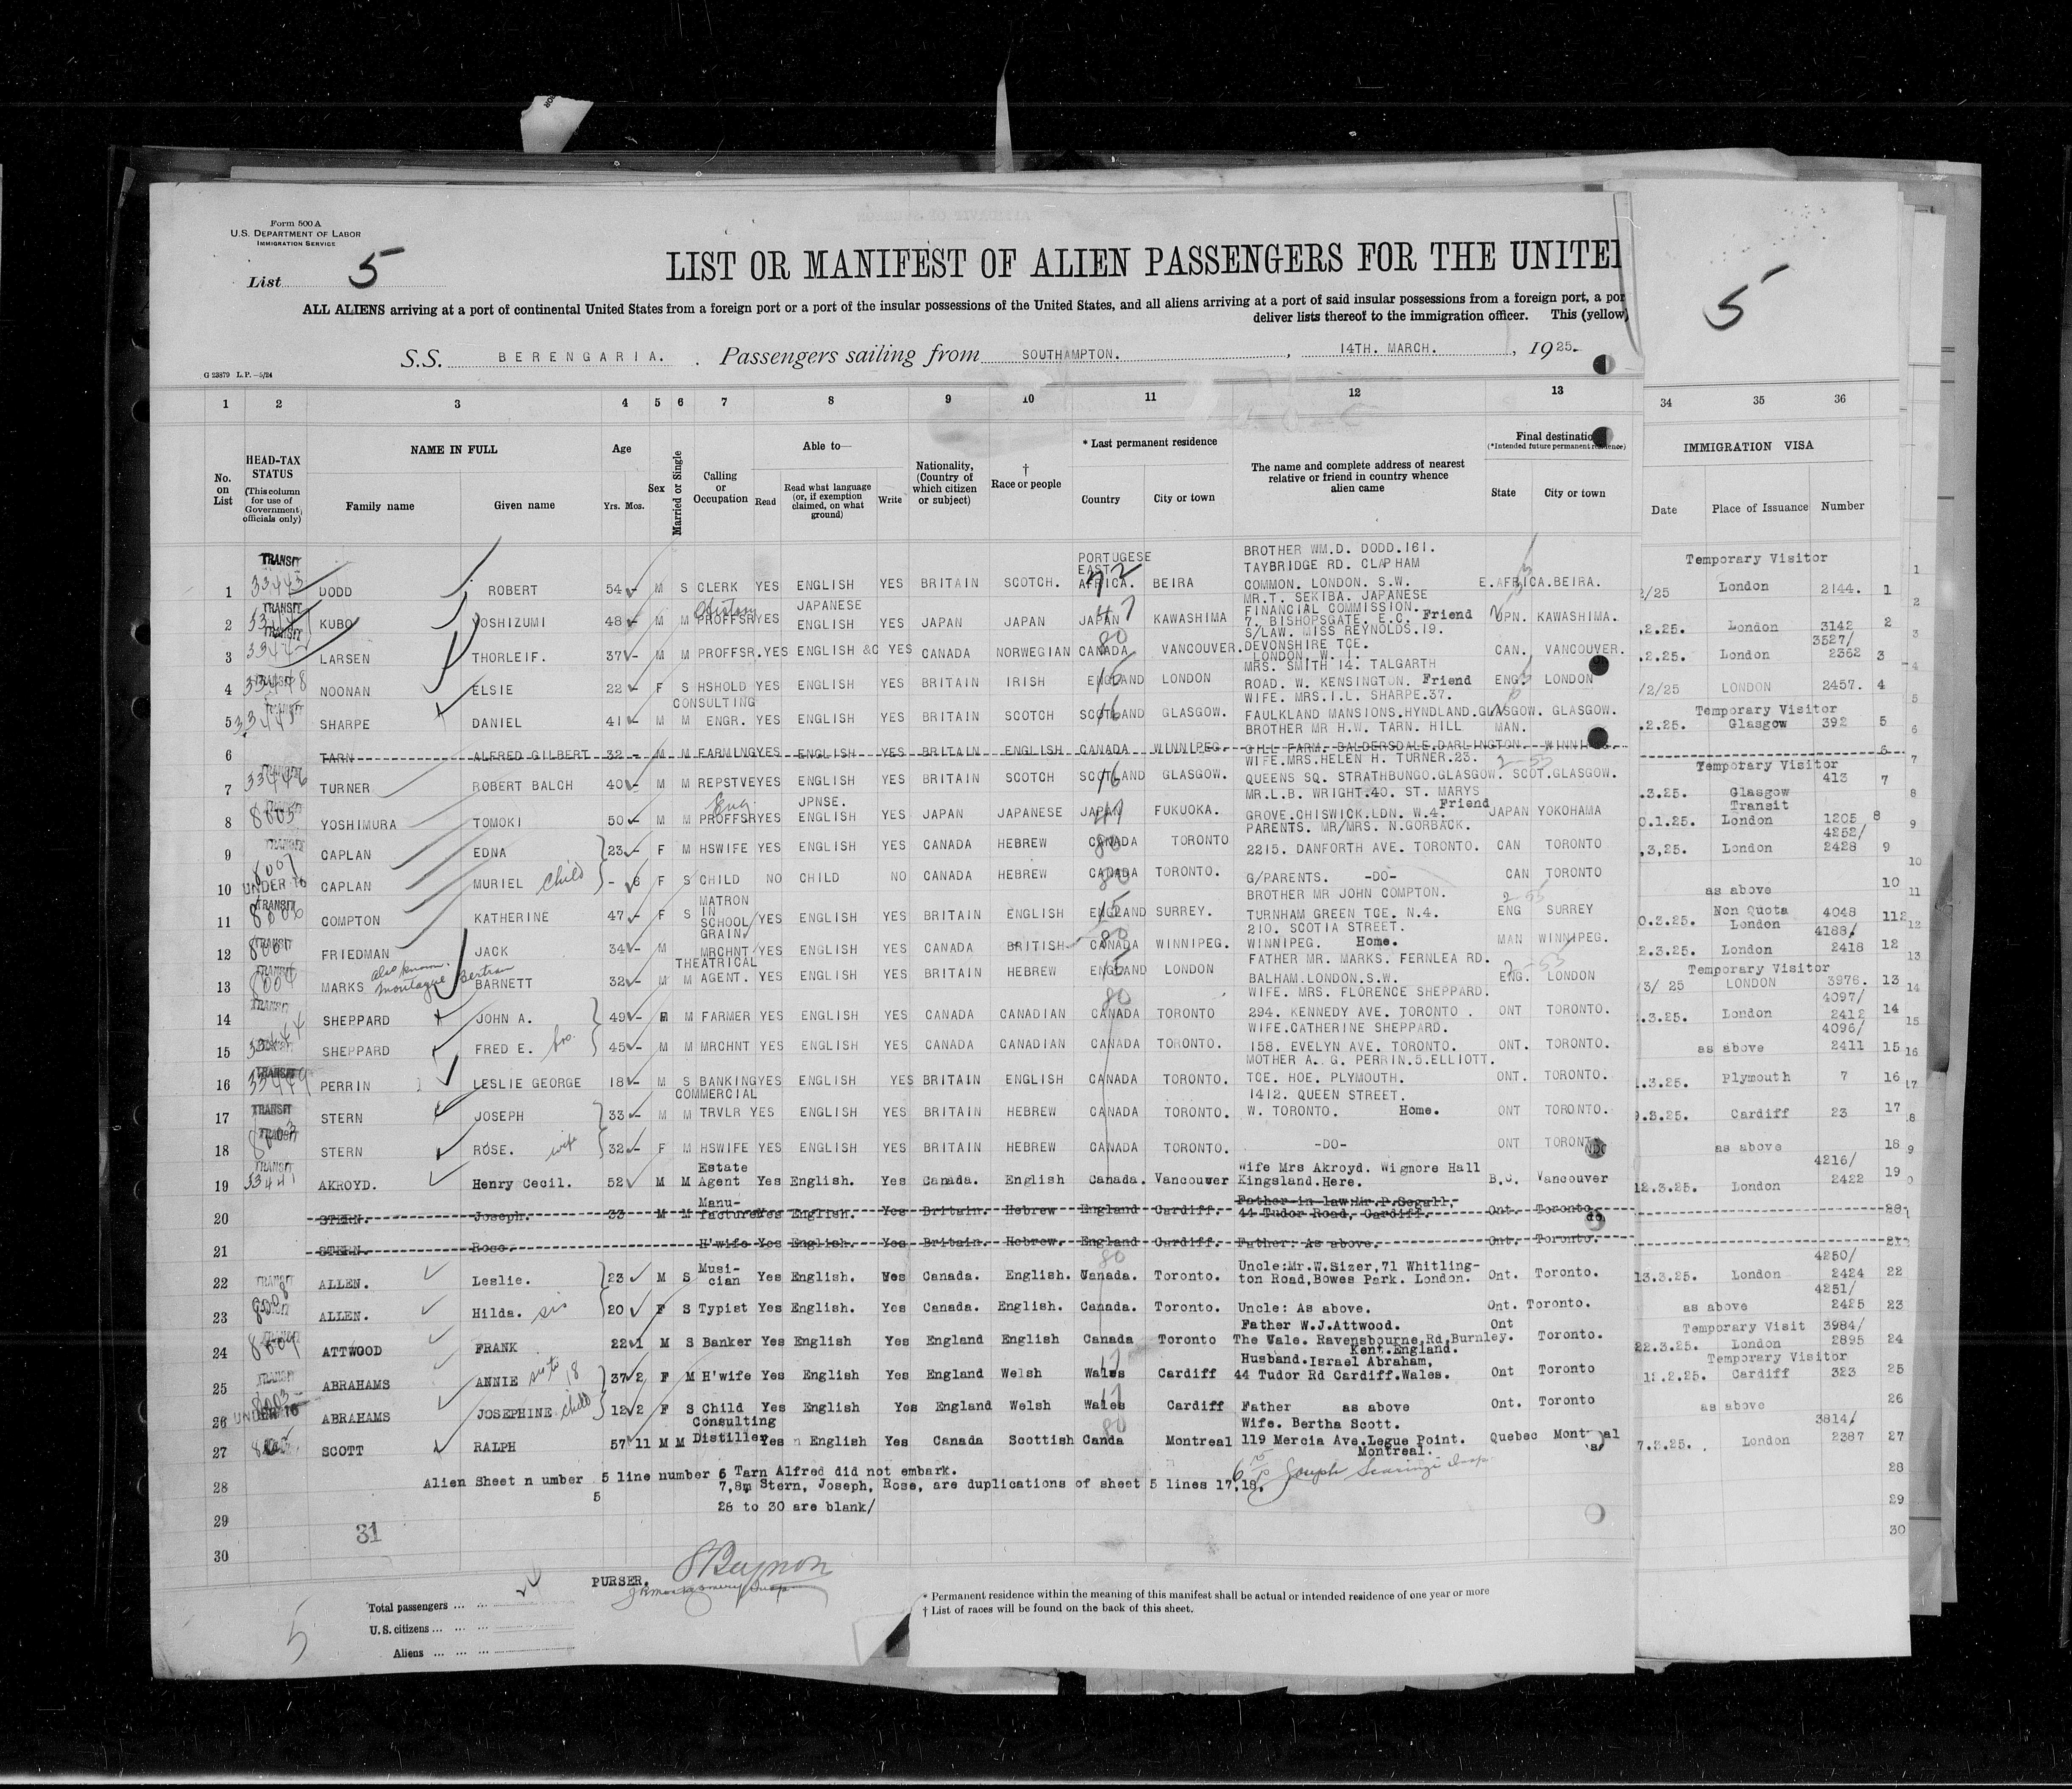 Form 500 A
U.S. DEPARTMENT OF LABOR
IMMIGRATION SERVICE
List 5
LIST OR MANIFEST OF ALIEN PASSENGERS FOR THE UNITE
ALL ALIENS arriving at a port of continental United States from a foreign port or a port of the insular possessions of the United States, and all aliens arriving at a port of said insular possessions from a foreign port, a por
deliver lists thereof to the immigration officer. This (yellow)
S.S. BERENGARIA. Passengers sailing from SOUTHAMPTON. , 14TH. MARCH. , 1925.
5
G 23879 L.P.—5/24
1 2 3 4 5 6 7 8 9 10 11 12 13 34 35 36
No. on List
HEAD-TAX STATUS (This column for use of Government officials only)
NAME IN FULL
Family name Given name
Age
Yrs. Mos.
Sex
Married or Single
Calling or Occupation
Able to—
Read Read what language (or, if exemption claimed, on what ground) Write
Nationality, (Country of which citizen or subject)
† Race or people
* Last permanent residence
Country City or town
The name and complete address of nearest relative or friend in country whence alien came
Final destination
(*Intended future permanent residence)
State City or town
IMMIGRATION VISA
Date Place of Issuance Number
1 TRANSIT 33443 DODD ROBERT 54 - M S CLERK YES ENGLISH YES BRITAIN SCOTCH. PORTUGESE EAST AFRICA. 72 BEIRA BROTHER WM.D. DODD.161. TAYBRIDGE RD. CLAPHAM COMMON. LONDON. S.W. E.AFRICA.BEIRA. Temporary Visitor 2/25 London 2144. 1
2 TRANSIT KUBO YOSHIZUMI 48 - M M PROFFSR YES JAPANESE ENGLISH YES JAPAN JAPAN JAPAN 47 KAWASHIMA MR.T. SEKIBA. JAPANESE FINANCIAL COMMISSION. 7. BISHOPSGATE. E.C. Friend JPN. KAWASHIMA. .2.25. London 3142 2
3 TRANSIT LARSEN THORLEIF. 37 - M M PROFFSR. YES ENGLISH &C YES CANADA NORWEGIAN CANADA 80 VANCOUVER. S/LAW. MISS REYNOLDS.19. DEVONSHIRE TCE. LONDON. W. 1. CAN. VANCOUVER. .2.25. London 3527/ 2362 3
4 TRANSIT 33448 NOONAN ELSIE 22 - F S HSHOLD YES ENGLISH YES BRITAIN IRISH ENGLAND 15 LONDON MRS. SMITH 14. TALGARTH ROAD. W. KENSINGTON. Friend ENG. LONDON /2/25 LONDON 2457. 4
5 TRANSIT SHARPE DANIEL 41 - M M CONSULTING ENGR. YES ENGLISH YES BRITAIN SCOTCH SCOTLAND 16 GLASGOW. WIFE. MRS.I.L. SHARPE.37. FAULKLAND MANSIONS.HYNDLAND.GLASGOW. GLASGOW. Temporary Visitor .2.25. Glasgow 392 5
6 TARN ALFRED GILBERT 32 - M M FARMING YES ENGLISH YES BRITAIN ENGLISH CANADA WINNIPEG. BROTHER MR H.W. TARN. HILL GILL FARM. BALDERSDALE.DARLINGTON. MAN. WINNIPEG. 6
7 TRANSIT 33446 TURNER ROBERT BALCH 40 - M M REPSTVE YES ENGLISH YES BRITAIN SCOTCH SCOTLAND 16 GLASGOW. WIFE.MRS.HELEN H. TURNER.23. QUEENS SQ. STRATHBUNGO.GLASGOW. SCOT.GLASGOW. 2-55 Temporary Visitor .3.25. Glasgow 413 7
8 TRANSIT 8005 YOSHIMURA TOMOKI 50 - M M Eng PROFFSR YES JPNSE. ENGLISH YES JAPAN JAPANESE JAPAN 47 FUKUOKA. MR.L.B. WRIGHT.40. ST. MARYS GROVE.CHISWICK.LDN. W.4. Friend JAPAN YOKOHAMA Transit 0.1.25. London 1205 8
9 TRANSIT CAPLAN EDNA 23 - F M HSWIFE YES ENGLISH YES CANADA HEBREW CANADA 80 TORONTO PARENTS. MR/MRS. N.GORBACK. 2215. DANFORTH AVE. TORONTO. CAN TORONTO ,3,25. London 4252/ 2428 9
10 8007 UNDER 16 CAPLAN MURIEL child - 6 F S CHILD NO CHILD NO CANADA HEBREW CANADA 80 TORONTO. G/PARENTS. -DO- CAN TORONTO as above 10
11 TRANSIT 8006 COMPTON KATHERINE 47 - F S MATRON IN SCHOOL YES ENGLISH YES BRITAIN ENGLISH ENGLAND 15 SURREY. BROTHER MR JOHN COMPTON. TURNHAM GREEN TCE. N.4. ENG SURREY 2-55 0.3.25. Non Quota London 4048 11
12 TRANSIT 8001 FRIEDMAN JACK 34 - M GRAIN. MRCHNT YES ENGLISH YES CANADA BRITISH CANADA 80 WINNIPEG. 210. SCOTIA STREET. WINNIPEG. Home. MAN WINNIPEG. 2.3.25. London 4188/ 2418 12
13 TRANSIT 8004 MARKS also known Montague Bertram BARNETT 32 - M M THEATRICAL AGENT. YES ENGLISH YES BRITAIN HEBREW ENGLAND 15 LONDON FATHER MR. MARKS. FERNLEA RD. BALHAM.LONDON.S.W. ENG. LONDON 2-55 Temporary Visitor /3/ 25 LONDON 3976. 13
14 TRANSIT SHEPPARD JOHN A. 49 - M M FARMER YES ENGLISH YES CANADA CANADIAN CANADA 80 TORONTO WIFE. MRS. FLORENCE SHEPPARD. 294. KENNEDY AVE. TORONTO . ONT TORONTO. .3.25. London 4097/ 2412 14
15 33444 SHEPPARD FRED E. bro. 45 - M M MRCHNT YES ENGLISH YES CANADA CANADIAN CANADA TORONTO. WIFE.CATHERINE SHEPPARD. 158. EVELYN AVE. TORONTO. ONT. TORONTO. as above 4096/ 2411 15
16 TRANSIT 33449 PERRIN LESLIE GEORGE 18 - M S BANKING YES ENGLISH YES BRITAIN ENGLISH CANADA TORONTO. MOTHER A. G. PERRIN.5.ELLIOTT. TCE. HOE. PLYMOUTH. ONT. TORONTO. .3.25. Plymouth 7 16
17 TRANSIT STERN JOSEPH 33 - M M COMMERCIAL TRVLR YES ENGLISH YES BRITAIN HEBREW CANADA TORONTO. 1412. QUEEN STREET. W. TORONTO. Home. ONT TORONTO. 9.3.25. Cardiff 23 17
18 TRANSIT STERN ROSE. wife 32 - F M HSWIFE YES ENGLISH YES BRITAIN HEBREW CANADA TORONTO. -DO- ONT TORONTO as above 18
19 TRANSIT 33441 AKROYD. Henry Cecil. 52 M M Estate Agent Yes English. Yes Canada. English Canada. Vancouver Wife Mrs Akroyd. Wigmore Hall Kingsland.Here. B.C. Vancouver 12.3.25. London 4216/ 2422 19
20 STERN. Joseph. 33 M M Manu- facture Yes English. Yes Britain. Hebrew England Cardiff. Father-in law:Mr.P.Segall, 44 Tudor Road, Cardiff. Ont. Toronto. do 20
21 STERN. Rose. H'wife Yes English. Yes Britain. Hebrew. England Cardiff. Father: As above. Ont. Toronto. 21
22 TRANSIT ALLEN. Leslie. 23 M S Musi- cian Yes English. Yes Canada. English. Canada. 80 Toronto. Uncle:Mr.W.Sizer,71 Whitling- ton Road,Bowes Park. London. Ont. Toronto. 13.3.25. London 4250/ 2424 22
23 8008 ALLEN. Hilda. sis 20 F S Typist Yes English. Yes Canada. English. Canada. Toronto. Uncle: As above. Ont. Toronto. as above 4251/ 2425 23
24 TRANSIT 8009 ATTWOOD FRANK 22 1 M S Banker Yes English Yes England English Canada Toronto Father W.J.Attwood. The Vale. Ravensbourne.Rd.Burnley. Kent.England. Ont Toronto. Temporary Visit 22.3.25. London 3984/ 2895 24
25 TRANSIT ABRAHAMS ANNIE sis to 18 37 2 F M H'wife Yes English Yes England Welsh Wales 17 Cardiff Husband.Israel Abraham, 44 Tudor Rd Cardiff.Wales. Ont Toronto Temporary Visitor 12.2.25. Cardiff 323 25
26 8003 UNDER 16 ABRAHAMS JOSEPHINE child 12 2 F S Child Yes English Yes England Welsh Wales 17 Cardiff Father as above Ont. Toronto as above 26
27 SCOTT RALPH 57 11 M M Consulting Distiller Yes English Yes Canada Scottish Canda 80 Montreal Wife. Bertha Scott. 119 Mercia Ave.Legue Point. Montreal. Quebec Montreal 7.3.25. London 3814/ 2387 27
28 Alien Sheet n umber 5 line number 6 Tarn Alfred did not embark. 28
5 7,8m Stern, Joseph, Rose, are duplications of sheet 5 lines 17,18.
28 to 30 are blank/
Joseph Scaringi Insp
29 31 29
30 30
PURSER.
Total passengers ... ...
U.S. citizens ... ... ...
Aliens ... ... ...
5
* Permanent residence within the meaning of this manifest shall be actual or intended residence of one year or more
† List of races will be found on the back of this sheet.